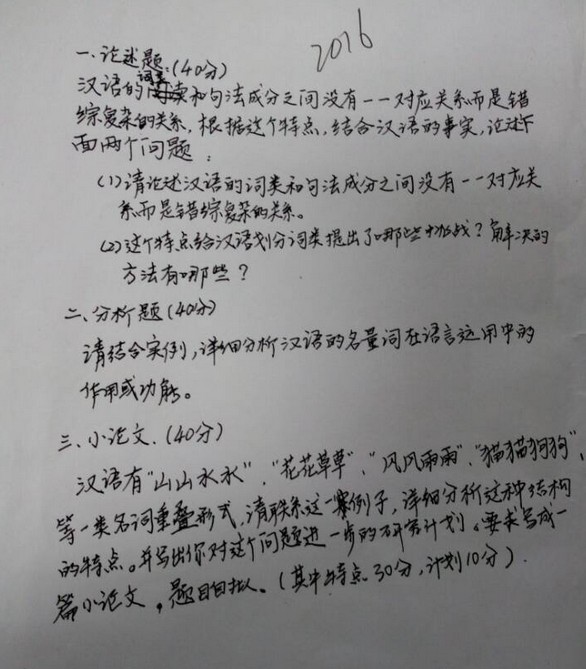 2016
一、论述题:(40分)
汉语的词类和句法成分之间没有一一对应关系而是错
综复杂的关系,根据这个特点,结合汉语的事实,论述下
面两个问题:
(1)请论述汉语的词类和句法成分之间没有一一对应关
系而是错综复杂的关系。
(2)这个特点给汉语划分词类提出了哪些挑战?解决的
方法有哪些?
二、分析题(40分)
请结合实例,详细分析汉语的名量词在语言运用中的
作用或功能。
三、小论文.(40分)
汉语有“山山水水”、“花花草草”、“风风雨雨”、“猫猫狗狗”、
等一类名词重叠形式,请联系这一类例子,详细分析这种结构
的特点。并写出你对这个问题进一步的研究计划。要求写成一
篇小论文,题目自拟。(其中特点30分,计划10分).